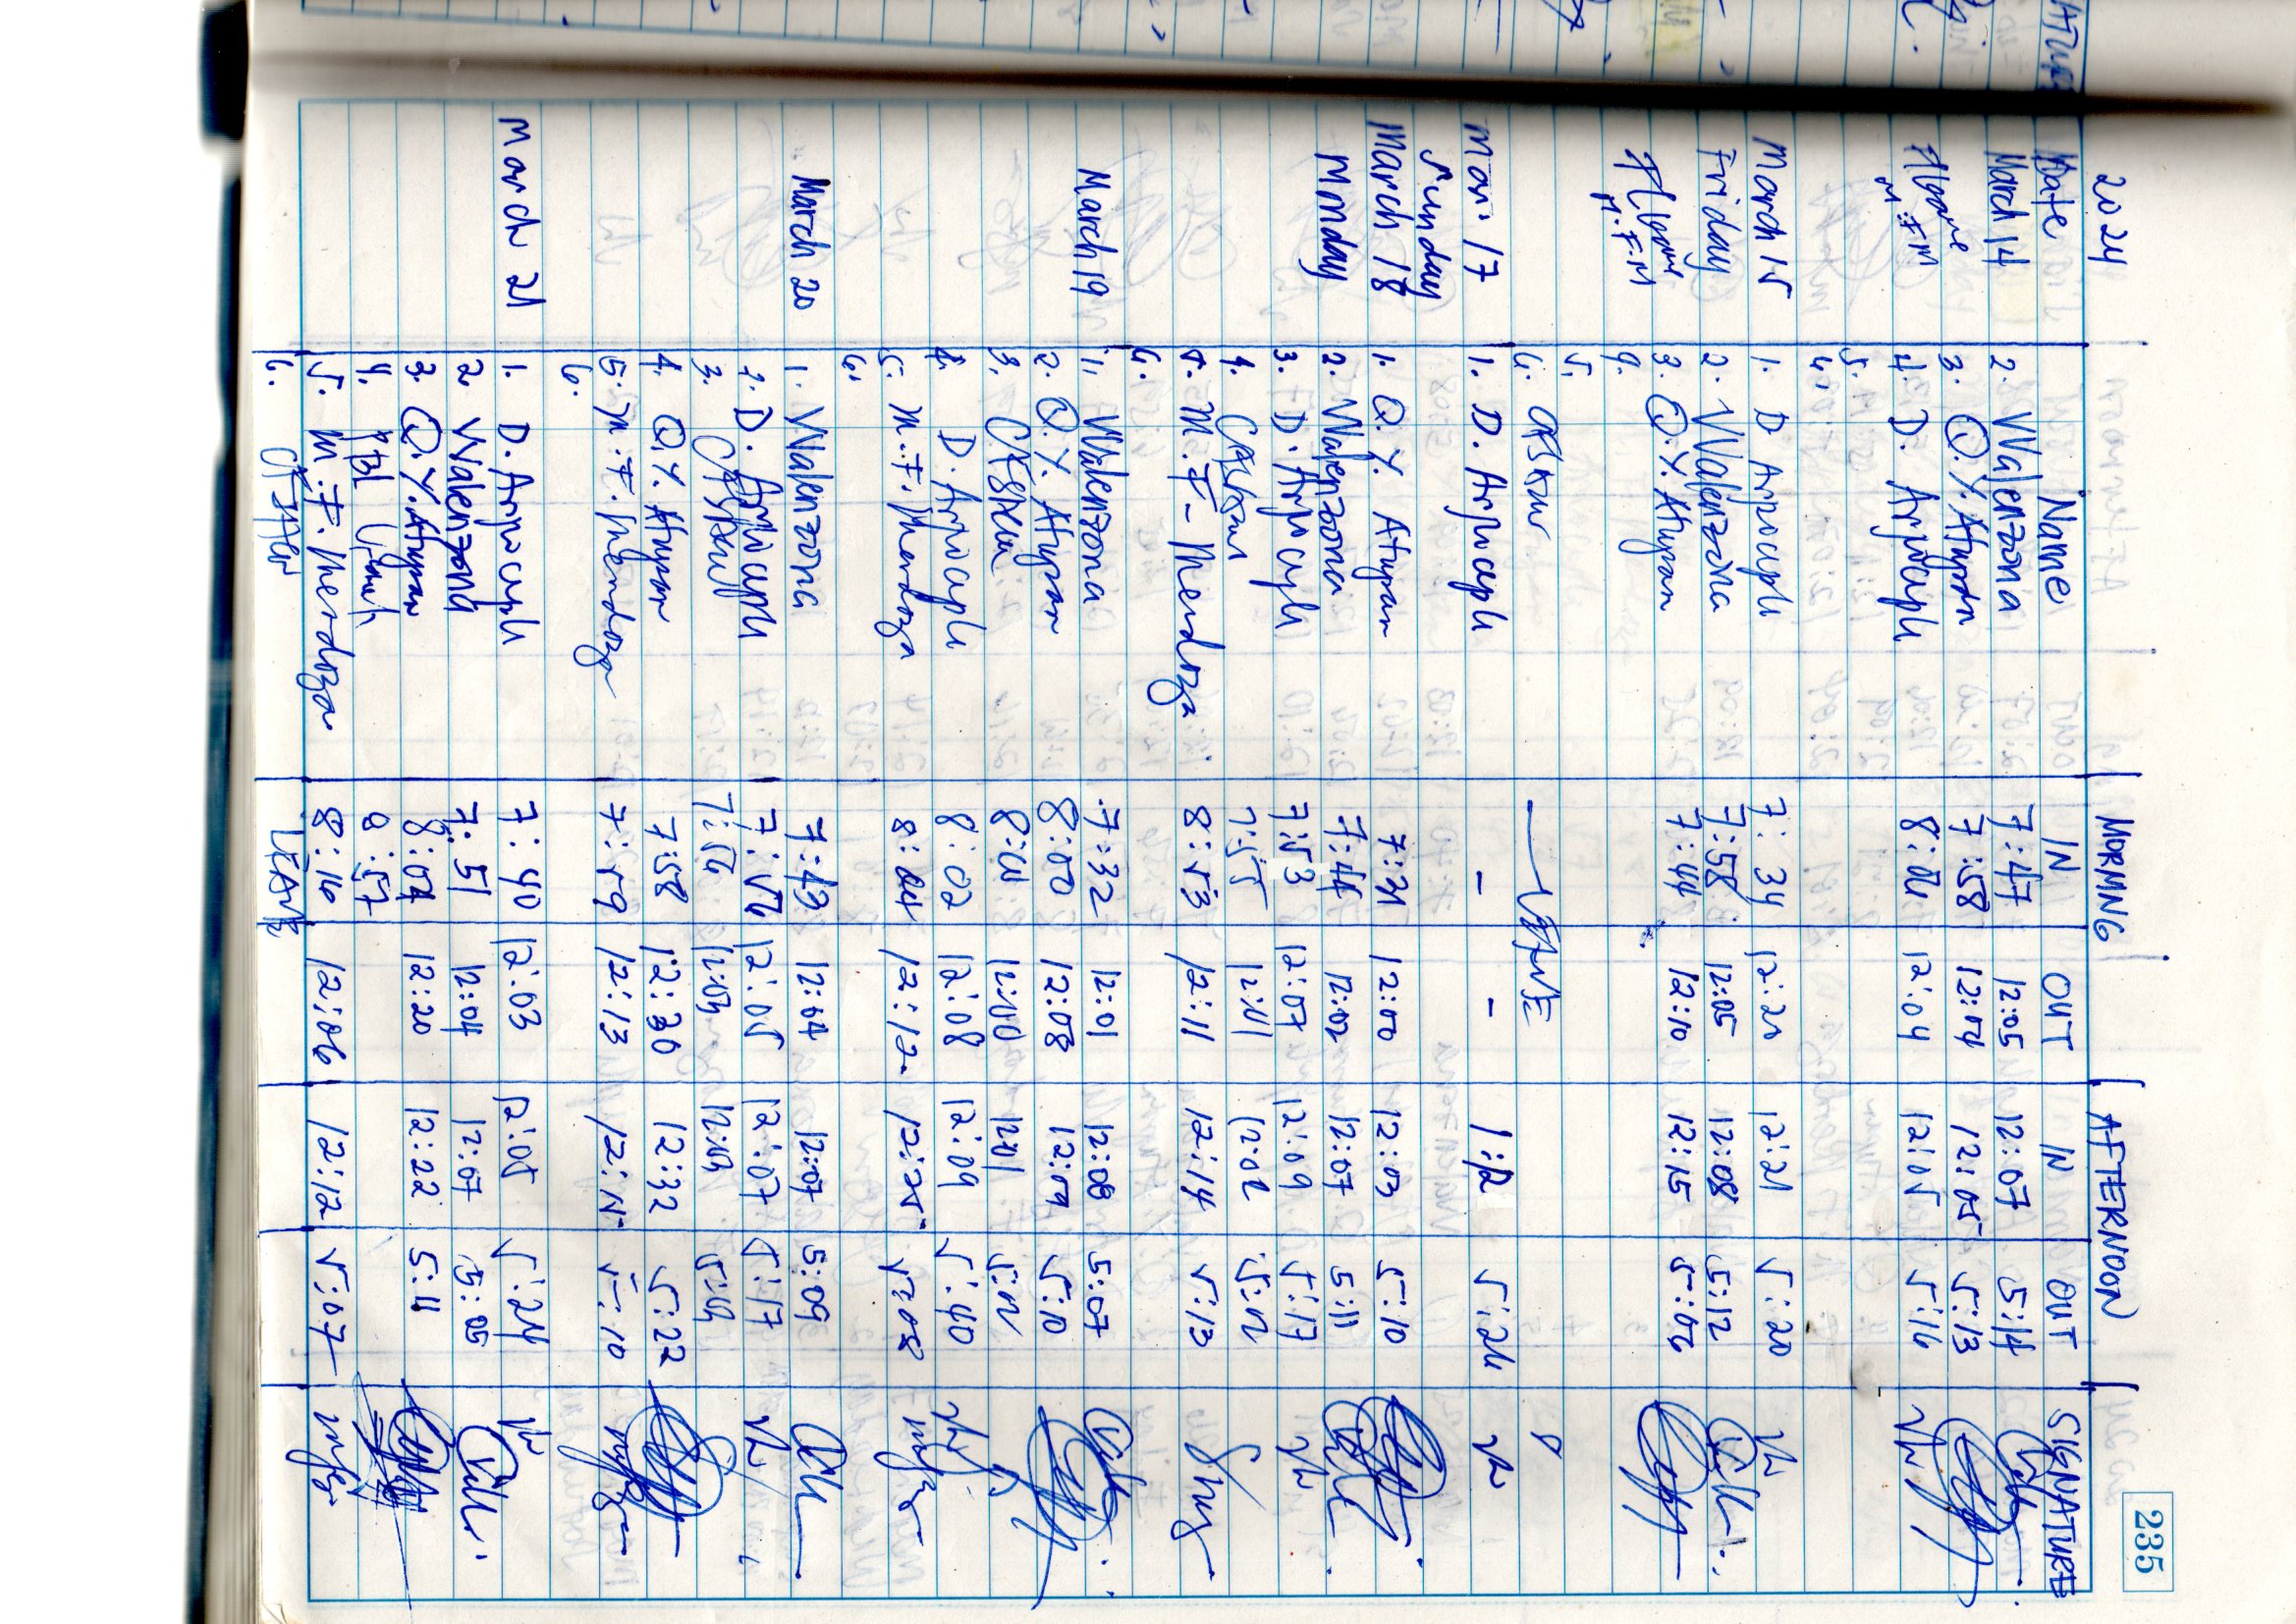 235
2024 MORNING AFTERNOON
Date Name IN OUT IN OUT SIGNATURE
March 14 2. Walenzona 7:47 12:05 12:07 5:14
3. Q.Y. Atupan 7:58 12:04 12:05 5:13
M.FM 4. D. Arpocepli 12:04 12:05 5:16
5.
6.
March 15 1. D Arpocepli 7:34 12:20 12:21 5:20
Friday 2. Walenzona 7:58 12:05 12:08 5:12
3. Q.Y. Atupan 7:44 12:10 12:15 5:06
M.F.M 4.
5.
6. LEAVE
Mar. 17 1. D. Arpocepli - - 1:12 5:24
Sunday
March 18 1. Q.Y. Atupan 7:31 12:00 12:03 5:10
Monday 2. Walenzona 7:44 12:02 12:07 5:11
3. D. Arpocepli 7:53 12:07 12:09 5:17
4. 7:55 12:01 12:02 5:02
5. M.F. Mendoza 8:53 12:11 12:14 5:13
6.
March 19 1. Walenzona 7:32 12:01 12:08 5:07
2. Q.Y. Atupan 8:00 12:08 12:09 5:10
3. 12:00 12:01
4. D. Arpocepli 8:02 12:08 12:09 5:40
5. M.F. Mendoza 12:12 12:25 5:08
6.
March 20 1. Walenzona 7:49 12:04 12:07 5:09
2. D. Arpocepli 12:05 12:07 5:17
3. 12:03
4. Q.Y. Atupan 7:58 12:30 12:32 5:22
5. M.F. Mendoza 7:59 12:13 12:15 5:10
6.
March 21 1. D. Arpocepli 7:40 12:03 12:05 5:24
2. Walenzona 7:51 12:04 12:07 5:05
3. Q.Y. Atupan 8:07 12:20 12:22 5:11
4. 8:57
5. M.F. Mendoza 8:16 12:06 12:12 5:07
6. LEAVE